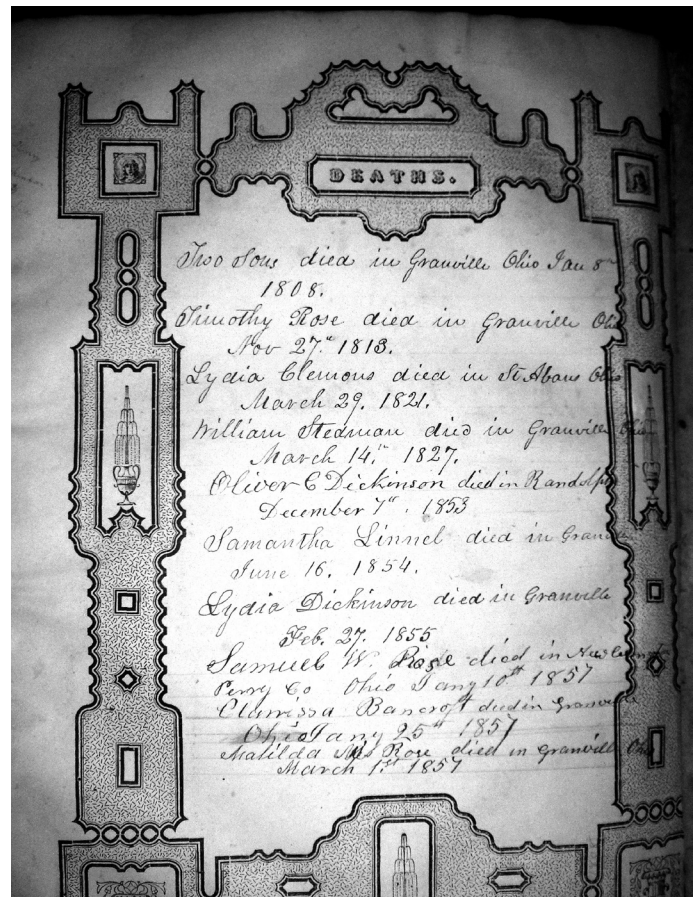 DEATHS.
Two Sons died in Granville Ohio Jan 8th
1808.
Timothy Rose died in Granville Ohio
Nov 27.th 1813.
Lydia Clemons died in St Abans Ohio
March 29. 1821.
William Stedman died in Granville Ohio
March 14.th 1827.
Oliver C Dickinson died in Randolph
December 7th. 1853
Samantha Linnel died in Granville
June 16. 1854.
Lydia Dickinson died in Granville
Feb. 27. 1855
Samuel W. Rose died in New
Perry Co Ohio Jany 10th 1857
Clarrissa Bancroft died in Granville
Ohio Jany 25th 1857
Matilda Rose died in Granville Ohio
March 1st 1857